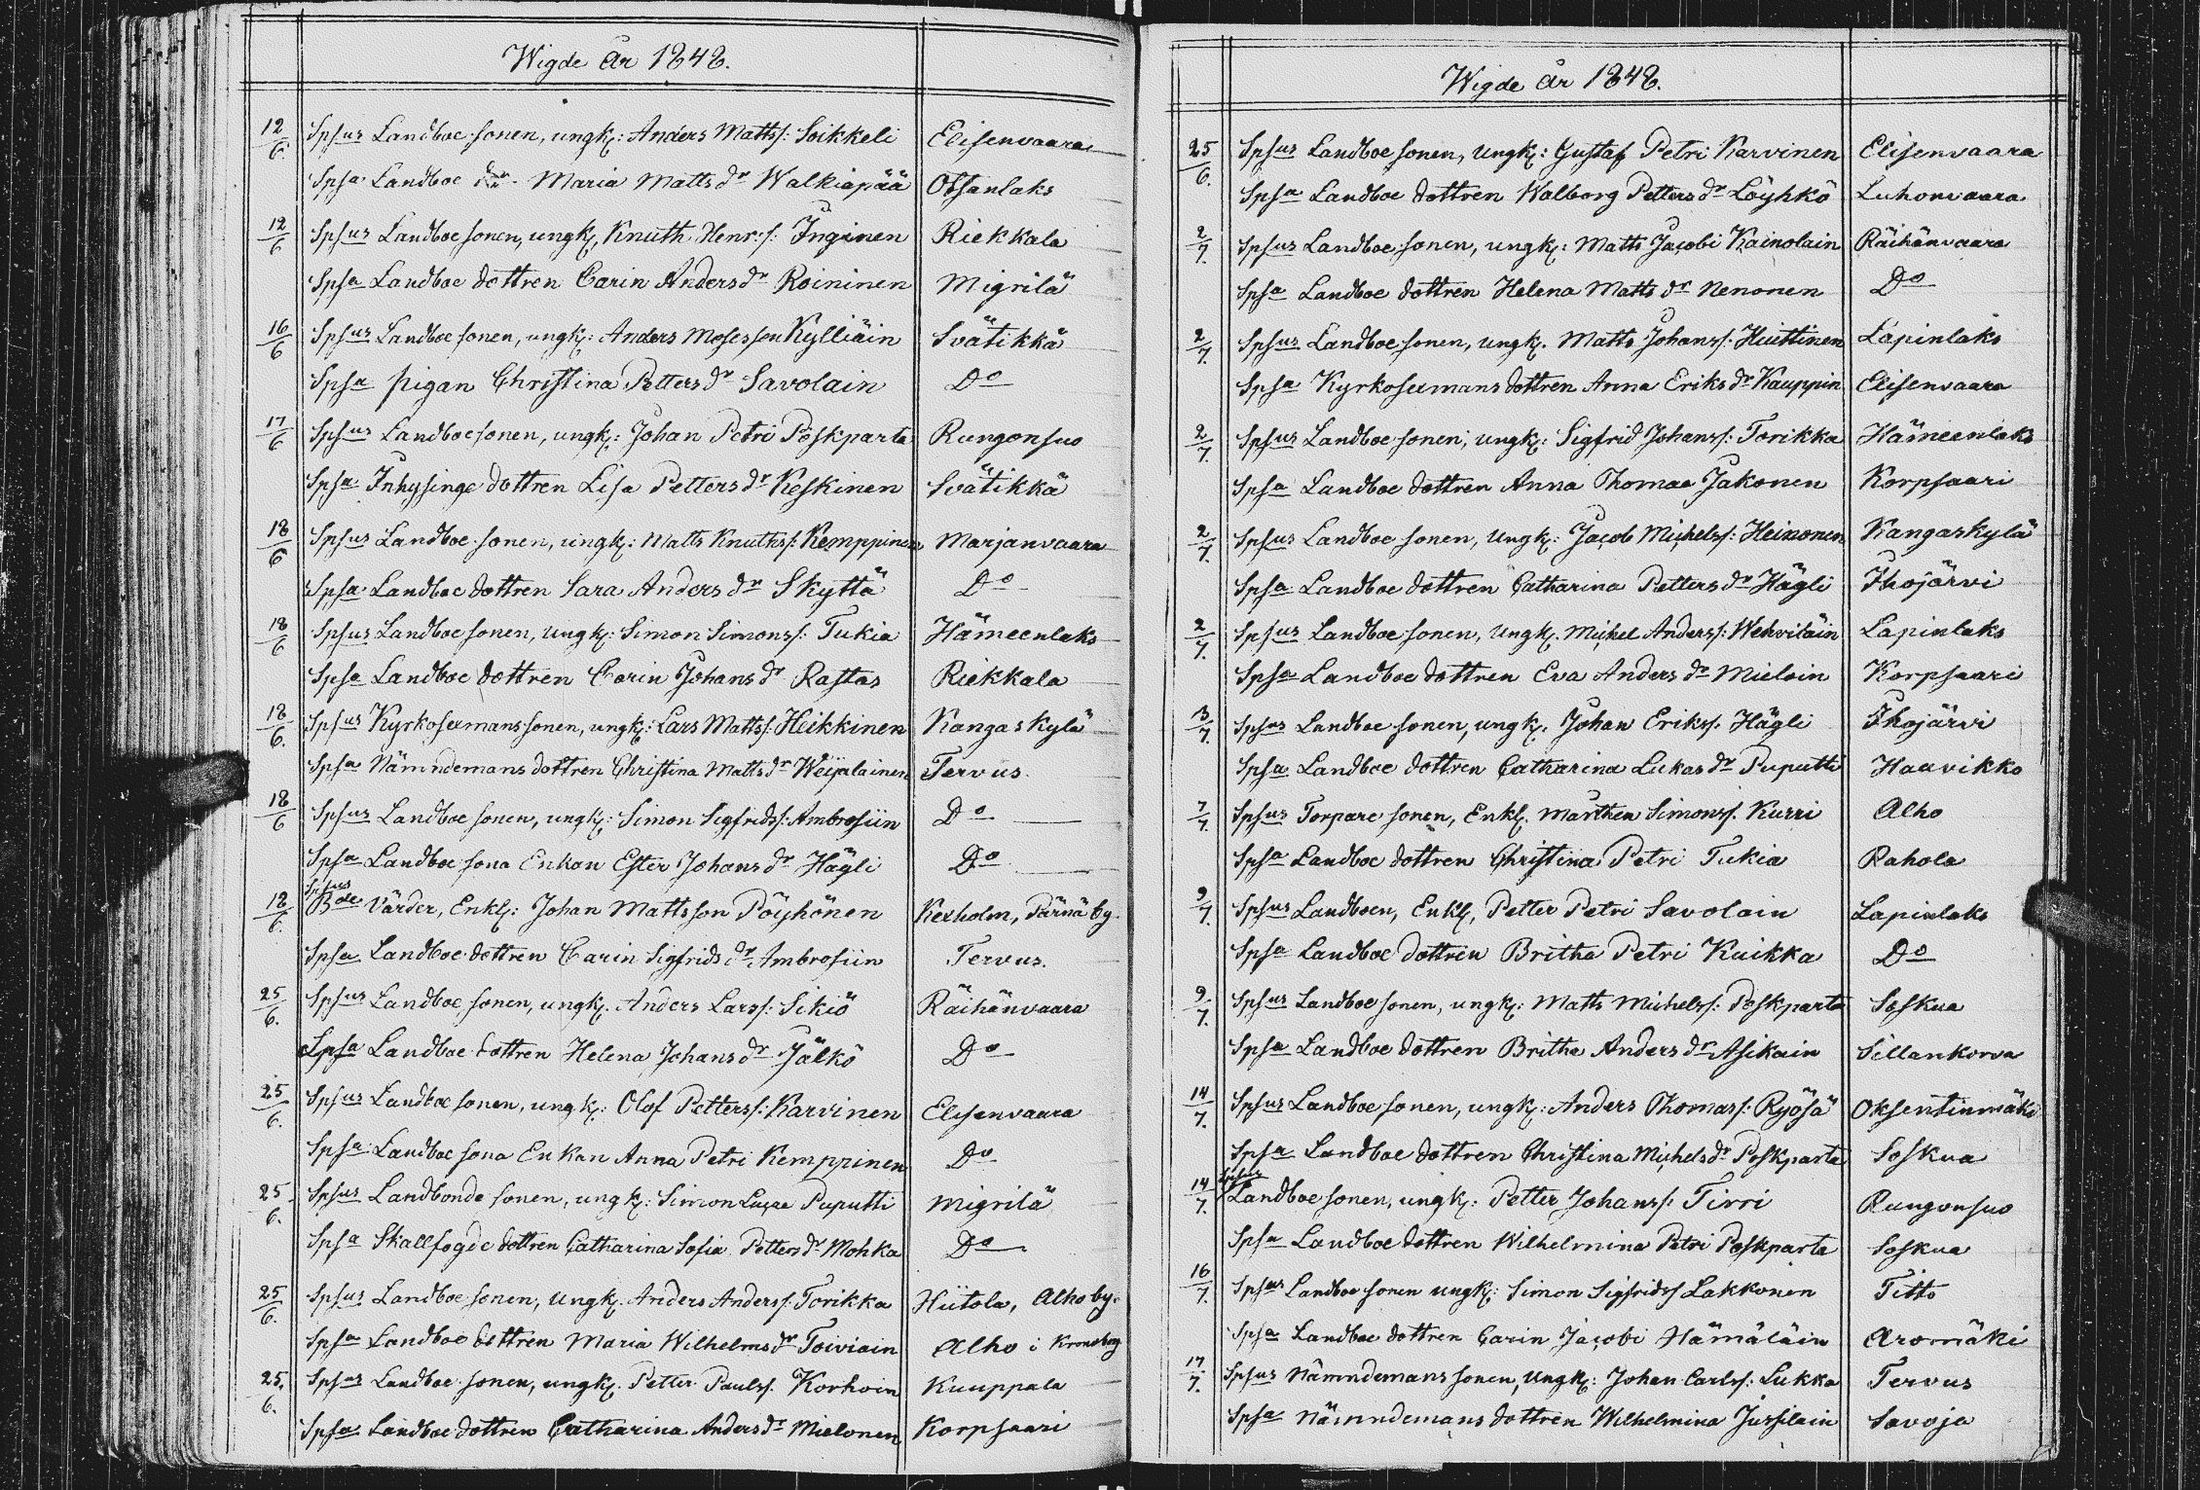 Wigde år 1848.
12/6 Spsus Landboe sonen, ungk: Anders Mattss: Soikkeli Elisenvaara
Spsa Landboe dr. Maria Matts dr Walkiapää Otsanlaks
12/6 Spsus Landboe sonen, ungk, Knuth Henr:s: Inginen Riekkala
Spsa Landboe dottren Carin Anders dr Roininen Migrilä
16/6 Spsus Landboe sonen, ungk: Anders Mosesson Kylliäin Svätikkä
Spsa pigan Christina Petters dr Savolain Do
17/6 Spsus Landboe sonen, ungk: Johan Petri Poskparta Rungonsuo
Spsa Inhysinge dottren Lisa Petters dr Keskinen Svätikkä
18/6 Spsus Landboe sonen, ungk: Matts Knuths: Kemppinen Marjanvaara
Spsa Landboe dottren Sara Anders dr Skyttä Do
18/6 Spsus Landboe sonen, ungk: Simon Simons: Tukia Hämeenlaks
Spsa Landboe dottren Carin Johans dr Rastas Riekkala
18/6. Spsus Kyrkosexmans sonen, ungk: Lars Mattss: Heikkinen Kangaskylä
Spsa Nämndemans dottren Christina Matts dr Weijalainen Tervus.
18/6 Spsus Landboe sonen, ungk: Simon Sigfrids: Ambrosiin Do
Spsa Landboe sona Enkan Ester Johans dr Hägli Do
18/6. Spsus Bde Värder, Enkl: Johan Mattsson Pöyhönen Kexholm, Pärnä by.
Spsa Landboe dottren Carin Sigfrids dr Ambrosiin Tervus.
25/6. Spsus Landboe sonen, ungk. Anders Larss: Sikiö Räihänvaara
Spsa Landboe dottren Helena Johans dr Jälkö Do
25/6. Spsus Landboe sonen, ungk: Olof Petterss: Karvinen Elisenvaara
Spsa Landboe sona Enkan Anna Petri Kemppinen Do
25/6. Spsus Landbonde sonen, ungk: Simon Lucae Puputti Migrilä
Spsa Skallfogde dottren Catharina Sofia Petters dr Mohka Do
25/6. Spsus Landboe sonen, ungk. Anders Anderss: Torikka Hiitola, Alho by.
Spsa Landboe dottren Maria Wilhelms dr Toiviain Alho i Kronoborg
25./6. Spsus Landboe sonen, ungk. Petter Paulss. Korhoin Kuuppala
Spsa Landboe dottren Catharina Anders dr Mielonen Korpsaari
Wigde år 1848.
25/6. Spsus Landboe sonen, ungk: Gustaf Petri Karvinen Elisenvaara
Spsa Landboe dottren Walborg Petters dr Löyhkö Luhonvaara
2/7. Spsus Landboe sonen, ungk: Matts Jacobi Kainolain Räihänvaara
Spsa Landboe dottren Helena Matts dr Nenonen Do
2/7. Spsus Landboe sonen, ungk. Matts Johanss: Huittinen Lapinlaks
Spsa Kyrkosexmans dottren Anna Eriks dr Kauppin Elisenvaara
2/7. Spsus Landboe sonen, ungk: Sigfrid Johanss: Torikka Hämeenlaks
Spsa Landboe dottren Anna Thomae Jakonen Korpsaari
2/7. Spsus Landboe sonen, ungk: Jacob Michelss: Heinonen Kangaskylä
Spsa Landboe dottren Catharina Petters dr Hägli Ihojärvi
2/7. Spsus Landboe sonen, ungk. Michel Anderss: Wehviläin Lapinlaks
Spsa Landboe dottren Eva Anders dr Mieloin Korpsaari
3/7. Spsus Landboe sonen, ungk. Johan Erikss. Hägli Ihojärvi
Spsa Landboe dottren Catharina Lukas dr Puputti Haavikko
7/7. Spsus Torpare sonen, Enkl. Marthen Simonss. Kurri Alho
Spsa Landboe dottren Christina Petri Tukia Rahola
9/7. Spsus Landboen, Enkl, Petter Petri Savolain Lapinlaks
Spsa Landboe dottren Britha Petri Kuikka Do
9/7. Spsus Landboe sonen, ungk: Matts Michelss: Poskparta Soskua
Spsa Landboe dottren Britha Anders dr Asikain Sillankorva
14/7. Spsus Landboe sonen, ungk: Anders Thomass: Ryösä Oksentinmäki
Spsa Landboe dottren Christina Michels dr Poskparta Soskua
14/7. Spsus Landboe sonen, ungk: Petter Johanss: Tirri Rungonsuo
Spsa Landboe dottren Wilhelmina Petri Poskparta Soskua
16/7. Spsus Landboe sonen ungk: Simon Sigfridss Lakkonen Titto
Spsa Landboe dottren Carin Jacobi Hämäläin Aromäki
17/7. Spsus Nämndemans sonen, ungk: Johan Carlss: Lukka Tervus
Spsa Nämndemans dottren Wilhelmina Jussilain Savoja